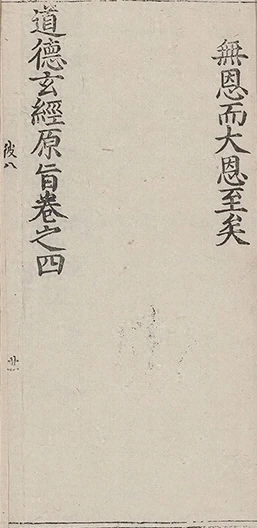 無恩而大恩至矣
道德玄經原旨卷之四
陂八
廿